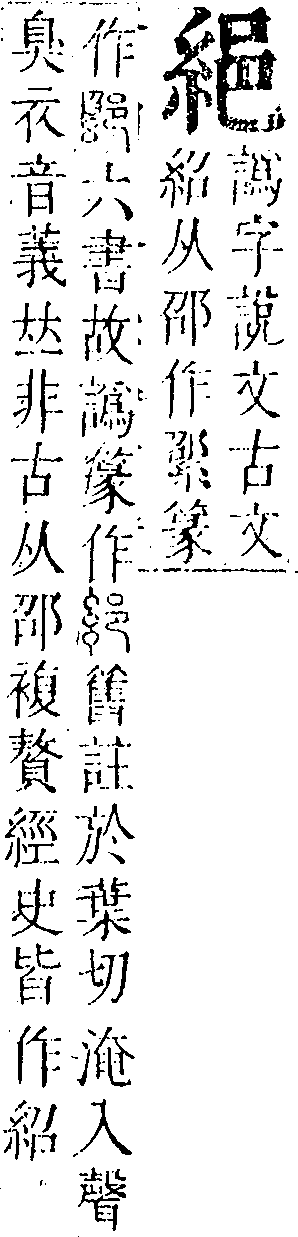 譌字說文古文
紹从邵作篆
作六書故譌篆作舊註於葉切淹入聲
臭衣音義𠀤非古从邵複贅經史皆作紹